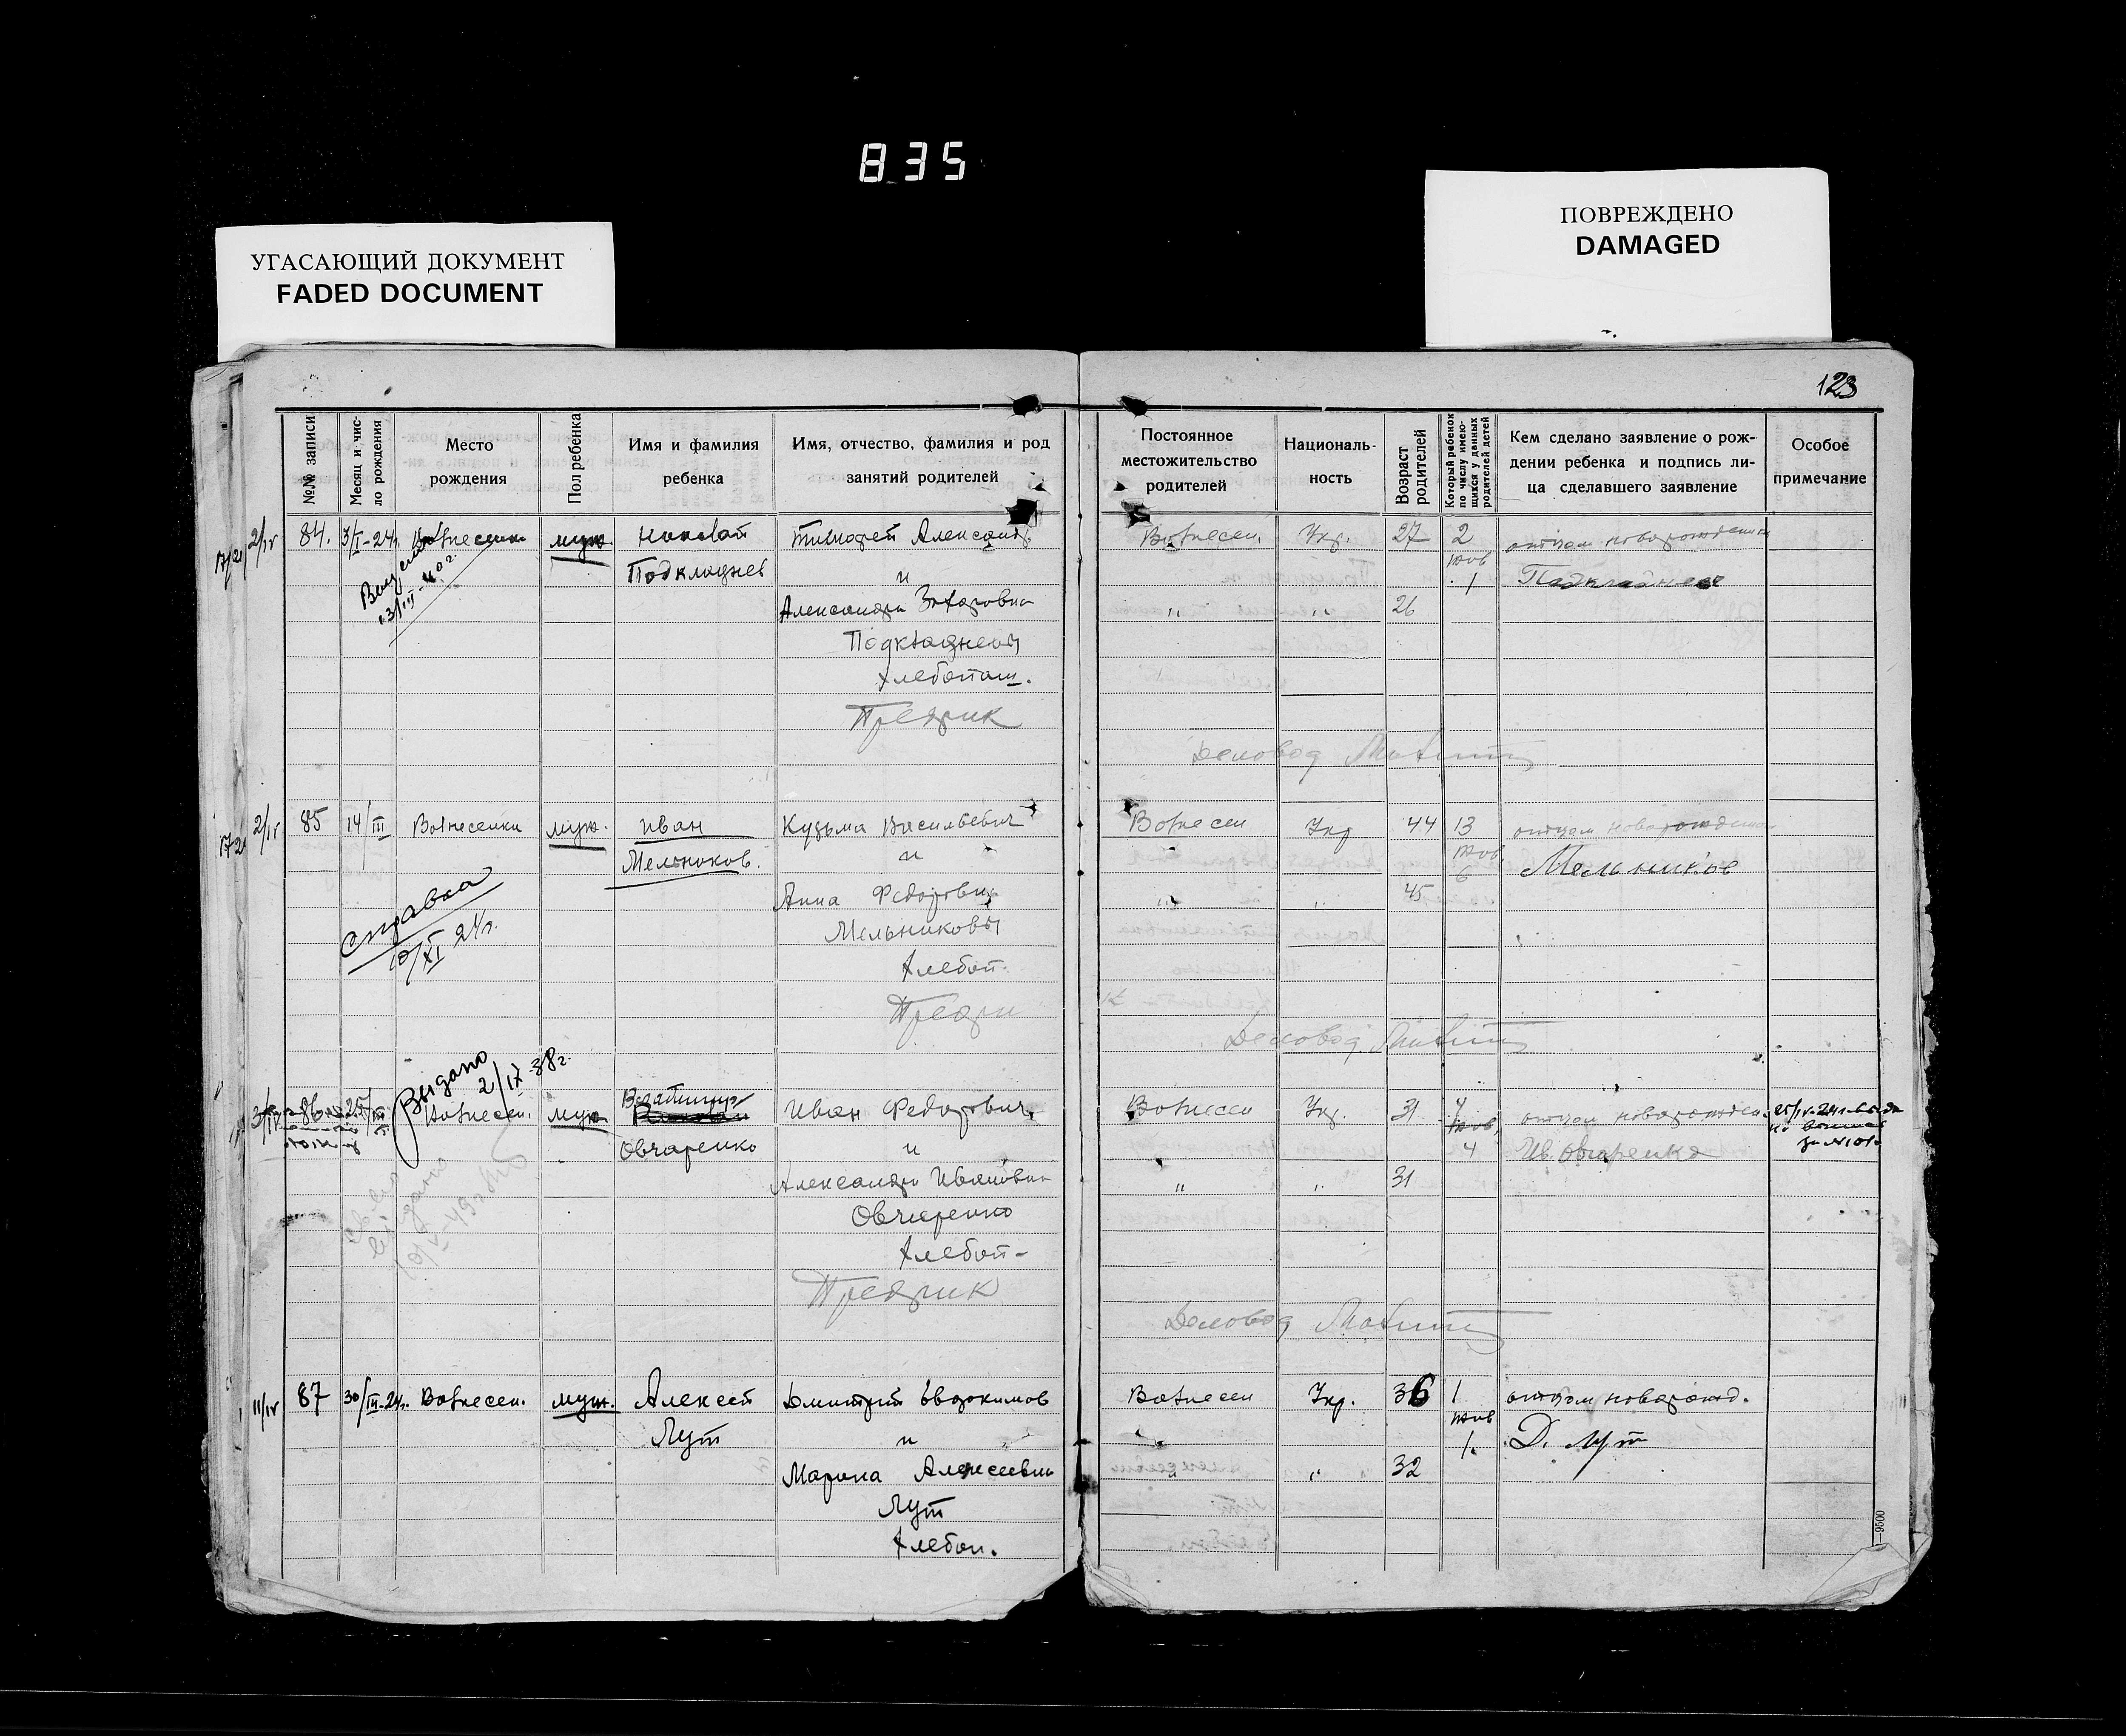 835
УГАСАЮЩИЙ ДОКУМЕНТ
FADED DOCUMENT
ПОВРЕЖДЕНО
DAMAGED
123
№№ записи
Месяц и чис-
ло рождения
Место
рождения
Пол ребенка
Имя и фамилия
ребенка
Имя, отчество, фамилия и род
занятий родителей
Постоянное
местожительство
родителей
Националь-
ность
Возраст
родителей
Который ребенок
по числу имею-
щихся у данных
родителей детей
Кем сделано заявление о рож-
дении ребенка и подпись ли-
ца сделавшего заявление
Особое
примечание
2/IV
84.
муж.
Подкладнев
Тимофей Александр
и
Александра Захаровна
Подкладневы
хлебопаш.
Предрик
Вознесен.
Укр.
27
2
жив
1
отцом новорожденн
Подкладнев
„
„
26
Деловод
2/IV
85
14/III
Вознесенка
муж.
Иван
Мельников.
Кузьма Васильевич
и
Анна Федоровна
Мельниковы
хлебоп.
Предри
справка
10/XI 24г.
Вознесен
Укр
44
13
жив
6
отцом новорожден
Мельников
„
„
45
Деловод
Выдано
2/IX-38г.
3/IV
86
25/III
Вознесен.
муж
Владимир
Овчаренко
Иван Федорович
и
Александра Ивановна
Овчаренко
хлебоп-
Предрик
Вознесен
Укр.
31
4
жив,
4
отцом новорожден.
Ив. Овчаренко
„
„
31
Деловод
11/IV
87
30/III-24г.
Вознесен.
муж.
Алексей
Лут
Дмитрий Евдокимов
и
Марина Алексеевна
Лут
хлебоп.
Вознесен
Укр.
36
1
жив
1.
отцом новорожд.
Д. Лут
„
32
—9500